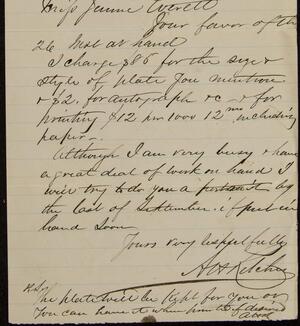 Miss Jennie Everett
Your favor of the
26 Inst at hand
I charge $85 for the size &
style of plate you mention
& $2. for autograph &c & for
printing $12 per 1000 12mo including
paper.-
Although I am very busy & have
a great deal of work on hand I
will try to do you a portrait by
the last of September if put in
hand soon
Yours very respectfully
A H Ritchie
The plate will be kept for you or
you can have it when printing desired